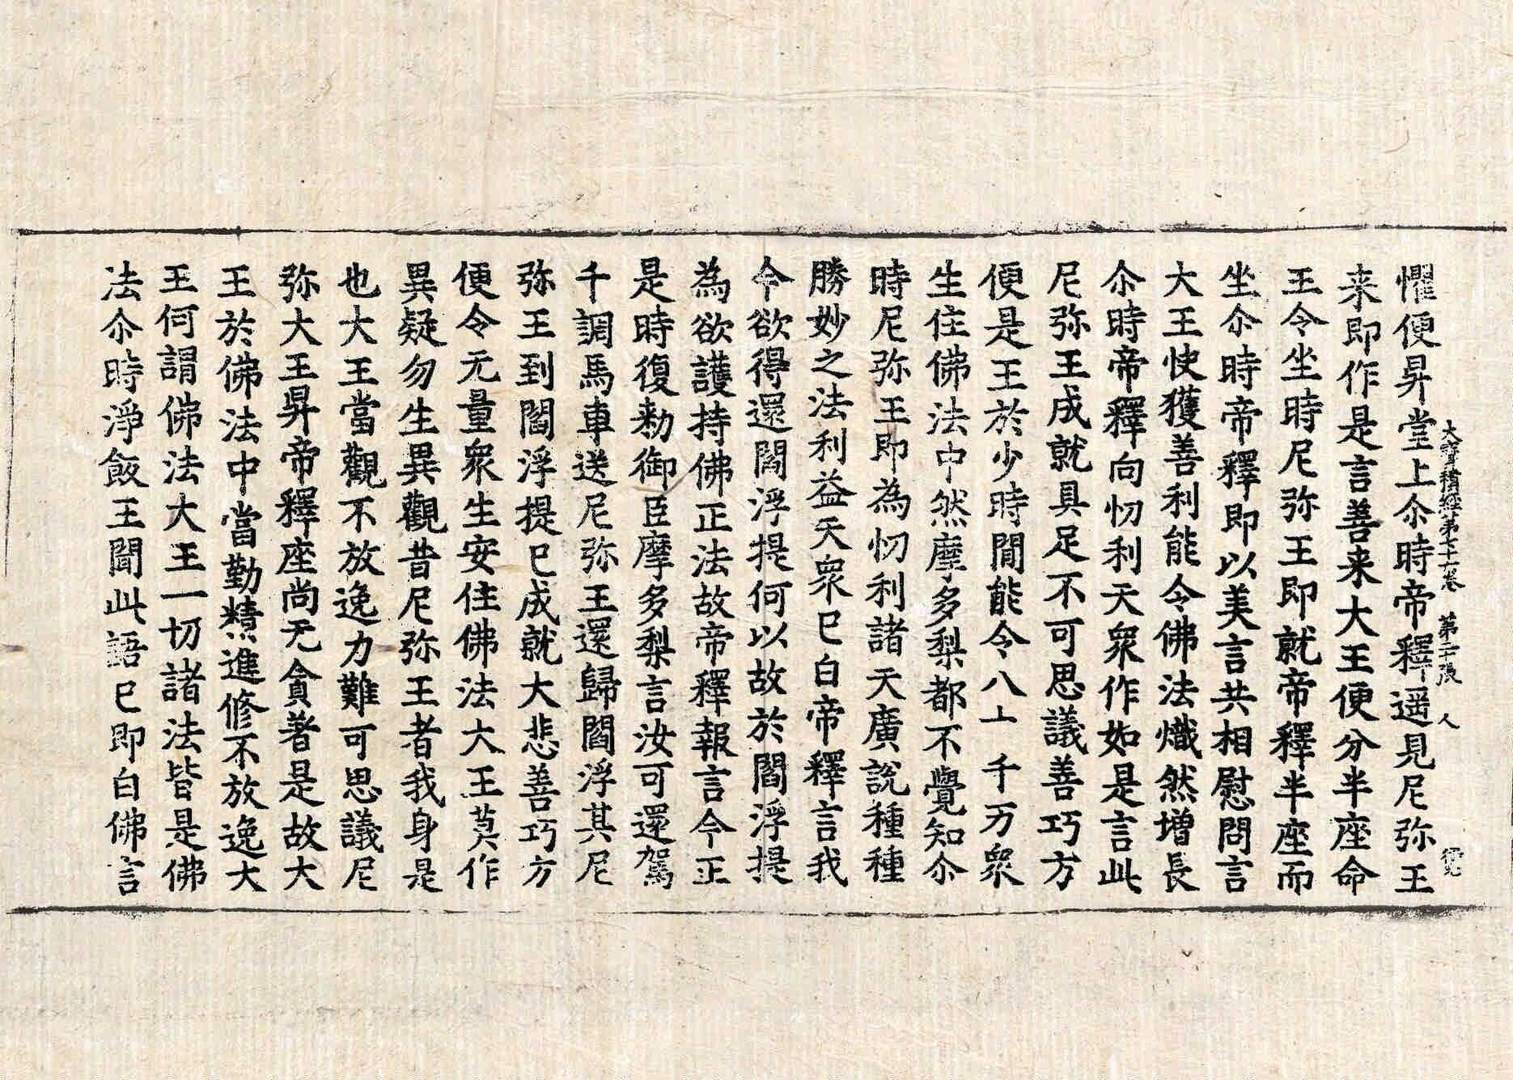 懼便昇堂上尒時帝釋遥見尼弥王
大寶積經第七十六卷　第　張　人
来即作是言善来大王便分半座命
王令坐時尼弥王即就帝釋半座而
坐尒時帝釋即以美言共相慰問言
大王快獲善利能令佛法熾然增長
尒時帝釋向忉利天衆作如是言此
尼弥王成就具足不可思議善巧方
便是王於少時間能令八十千万衆
生住佛法中然摩多梨都不覺知尒
時尼弥王即為忉利諸天廣說種種
勝妙之法利益天衆已白帝釋言我
今欲得還閻浮提何以故於閻浮提
為欲護持佛正法故帝釋報言今正
是時復勑御臣摩多梨言汝可還駕
千調馬車送尼弥王還歸閻浮其尼
弥王到閻浮提已成就大悲善巧方
便令无量衆生安住佛法大王莫作
異疑勿生異觀昔尼弥王者我身是
也大王當觀不放逸力難可思議尼
弥大王昇帝釋座尚无貪著是故大
王於佛法中當勤精進修不放逸大
王何謂佛法大王一切諸法皆是佛
法尒時淨飯王聞此語已即白佛言